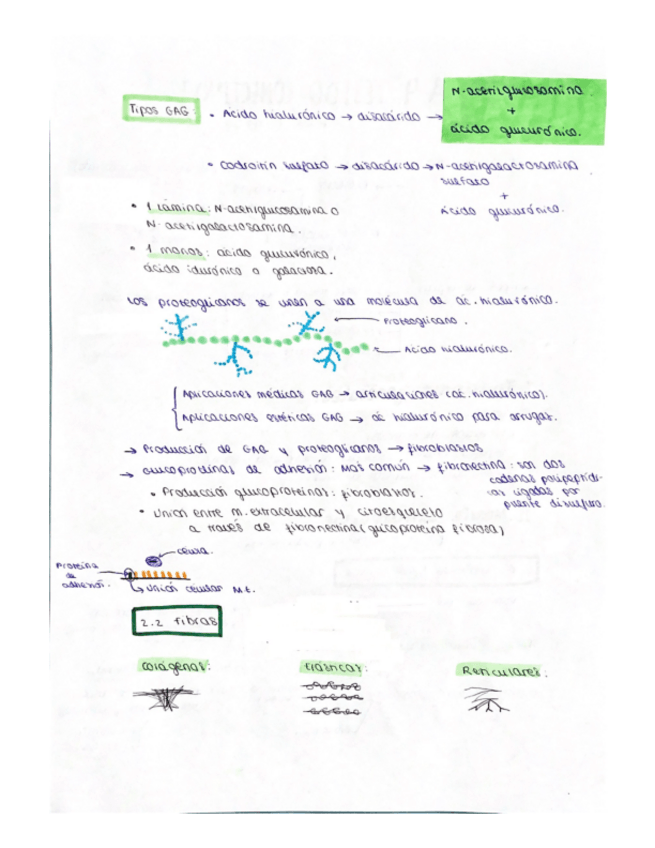 Tipos GAG: • Ácido hialurónico → disacárido → N-acetilglucosamina
+
ácido glucurónico.
• Codroitín sulfato → disacárido → N-acetilgalactosamina
sulfato
+
Ácido glucurónico.
• 1 : N-acetilglucosamina o
N-acetilgalactosamina.
• 1 : ácido glucurónico,
ácido idurónico o galactosa.
Los proteoglicanos se unen a una molécula de ác. hialurónico.
Proteoglicano.
Ácido hialurónico.
Aplicaciones médicas GAG → articulaciones (ác. hialurónico).
Aplicaciones estéticas GAG → ác hialurónico para arrugas.
→ Producción de GAG y proteoglicanos → fibroblastos
→ Glucoproteínas de adhesión: Más común → fibronectina: son dos
cadenas polipeptídi-
cas ligadas por
puente disulfuro.
• Producción glucoproteínas: fibroblastos.
• Unión entre m. extracelular y citoesqueleto
a través de fibronectina (glicoproteína fibrosa)
célula.
Proteína
de
adhesión.
→ unión celular M.E.
2.2 fibras
Colágenas:
Elásticas:
Reticulares: